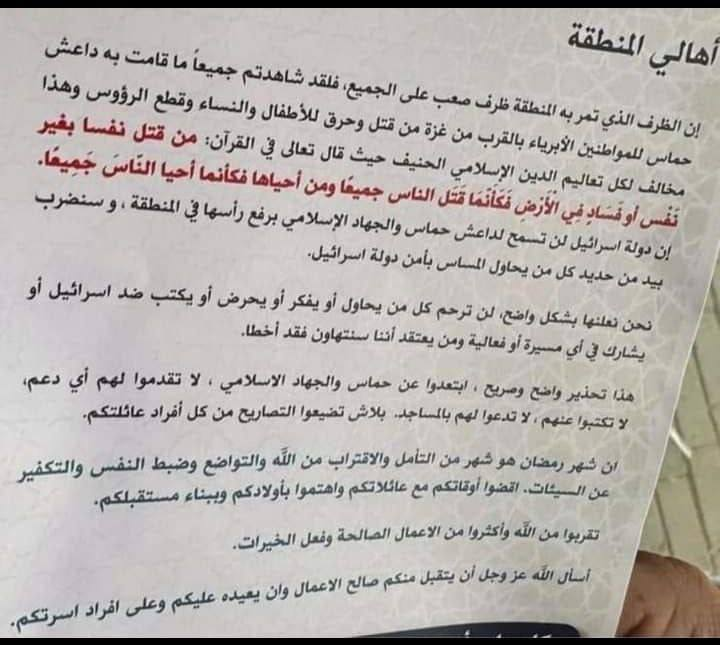 أهالي المنطقة
إن الظرف الذي تمر به المنطقة ظرف صعب على الجميع، فلقد شاهدتم جميعاً ما قامت به داعش
حماس للمواطنين الأبرياء بالقرب من غزة من قتل وحرق للأطفال والنساء وقطع الرؤوس وهذا
مخالف لكل تعاليم الدين الإسلامي الحنيف حيث قال تعالى في القرآن: من قتل نفسا بغير
نَفْس أو فَسَادٍ فِي الْأَرْضِ فَكَأَنَّمَا قَتَل الناس جميعًا ومن أحياها فكأنما أحيا النَّاسَ جَمِيعًا.
إن دولة اسرائيل لن تسمح لداعش حماس والجهاد الإسلامي برفع رأسها في المنطقة ، و سنضرب
بيد من حديد كل من يحاول المساس بأمن دولة اسرائيل.
نحن نعلنها بشكل واضح، لن نرحم كل من يحاول أو يفكر أو يحرض أو يكتب ضد اسرائيل أو
يشارك في أي مسيرة أو فعالية ومن يعتقد أننا سنتهاون فقد أخطا.
هذا تحذير واضح وصريح ، ابتعدوا عن حماس والجهاد الاسلامي ، لا تقدموا لهم أي دعم،
لا تكتبوا عنهم ، لا تدعوا لهم بالمساجد. بلاش تضيعوا التصاريح من كل أفراد عائلتكم.
ان شهر رمضان هو شهر من التأمل والاقتراب من الله والتواضع وضبط النفس والتكفير
عن السيئات. اقضوا أوقاتكم مع عائلاتكم واهتموا بأولادكم وببناء مستقبلكم.
تقربوا من الله وأكثروا من الاعمال الصالحة وفعل الخيرات.
أسأل الله عز وجل أن يتقبل منكم صالح الاعمال وان يعيده عليكم وعلى افراد اسرتكم.